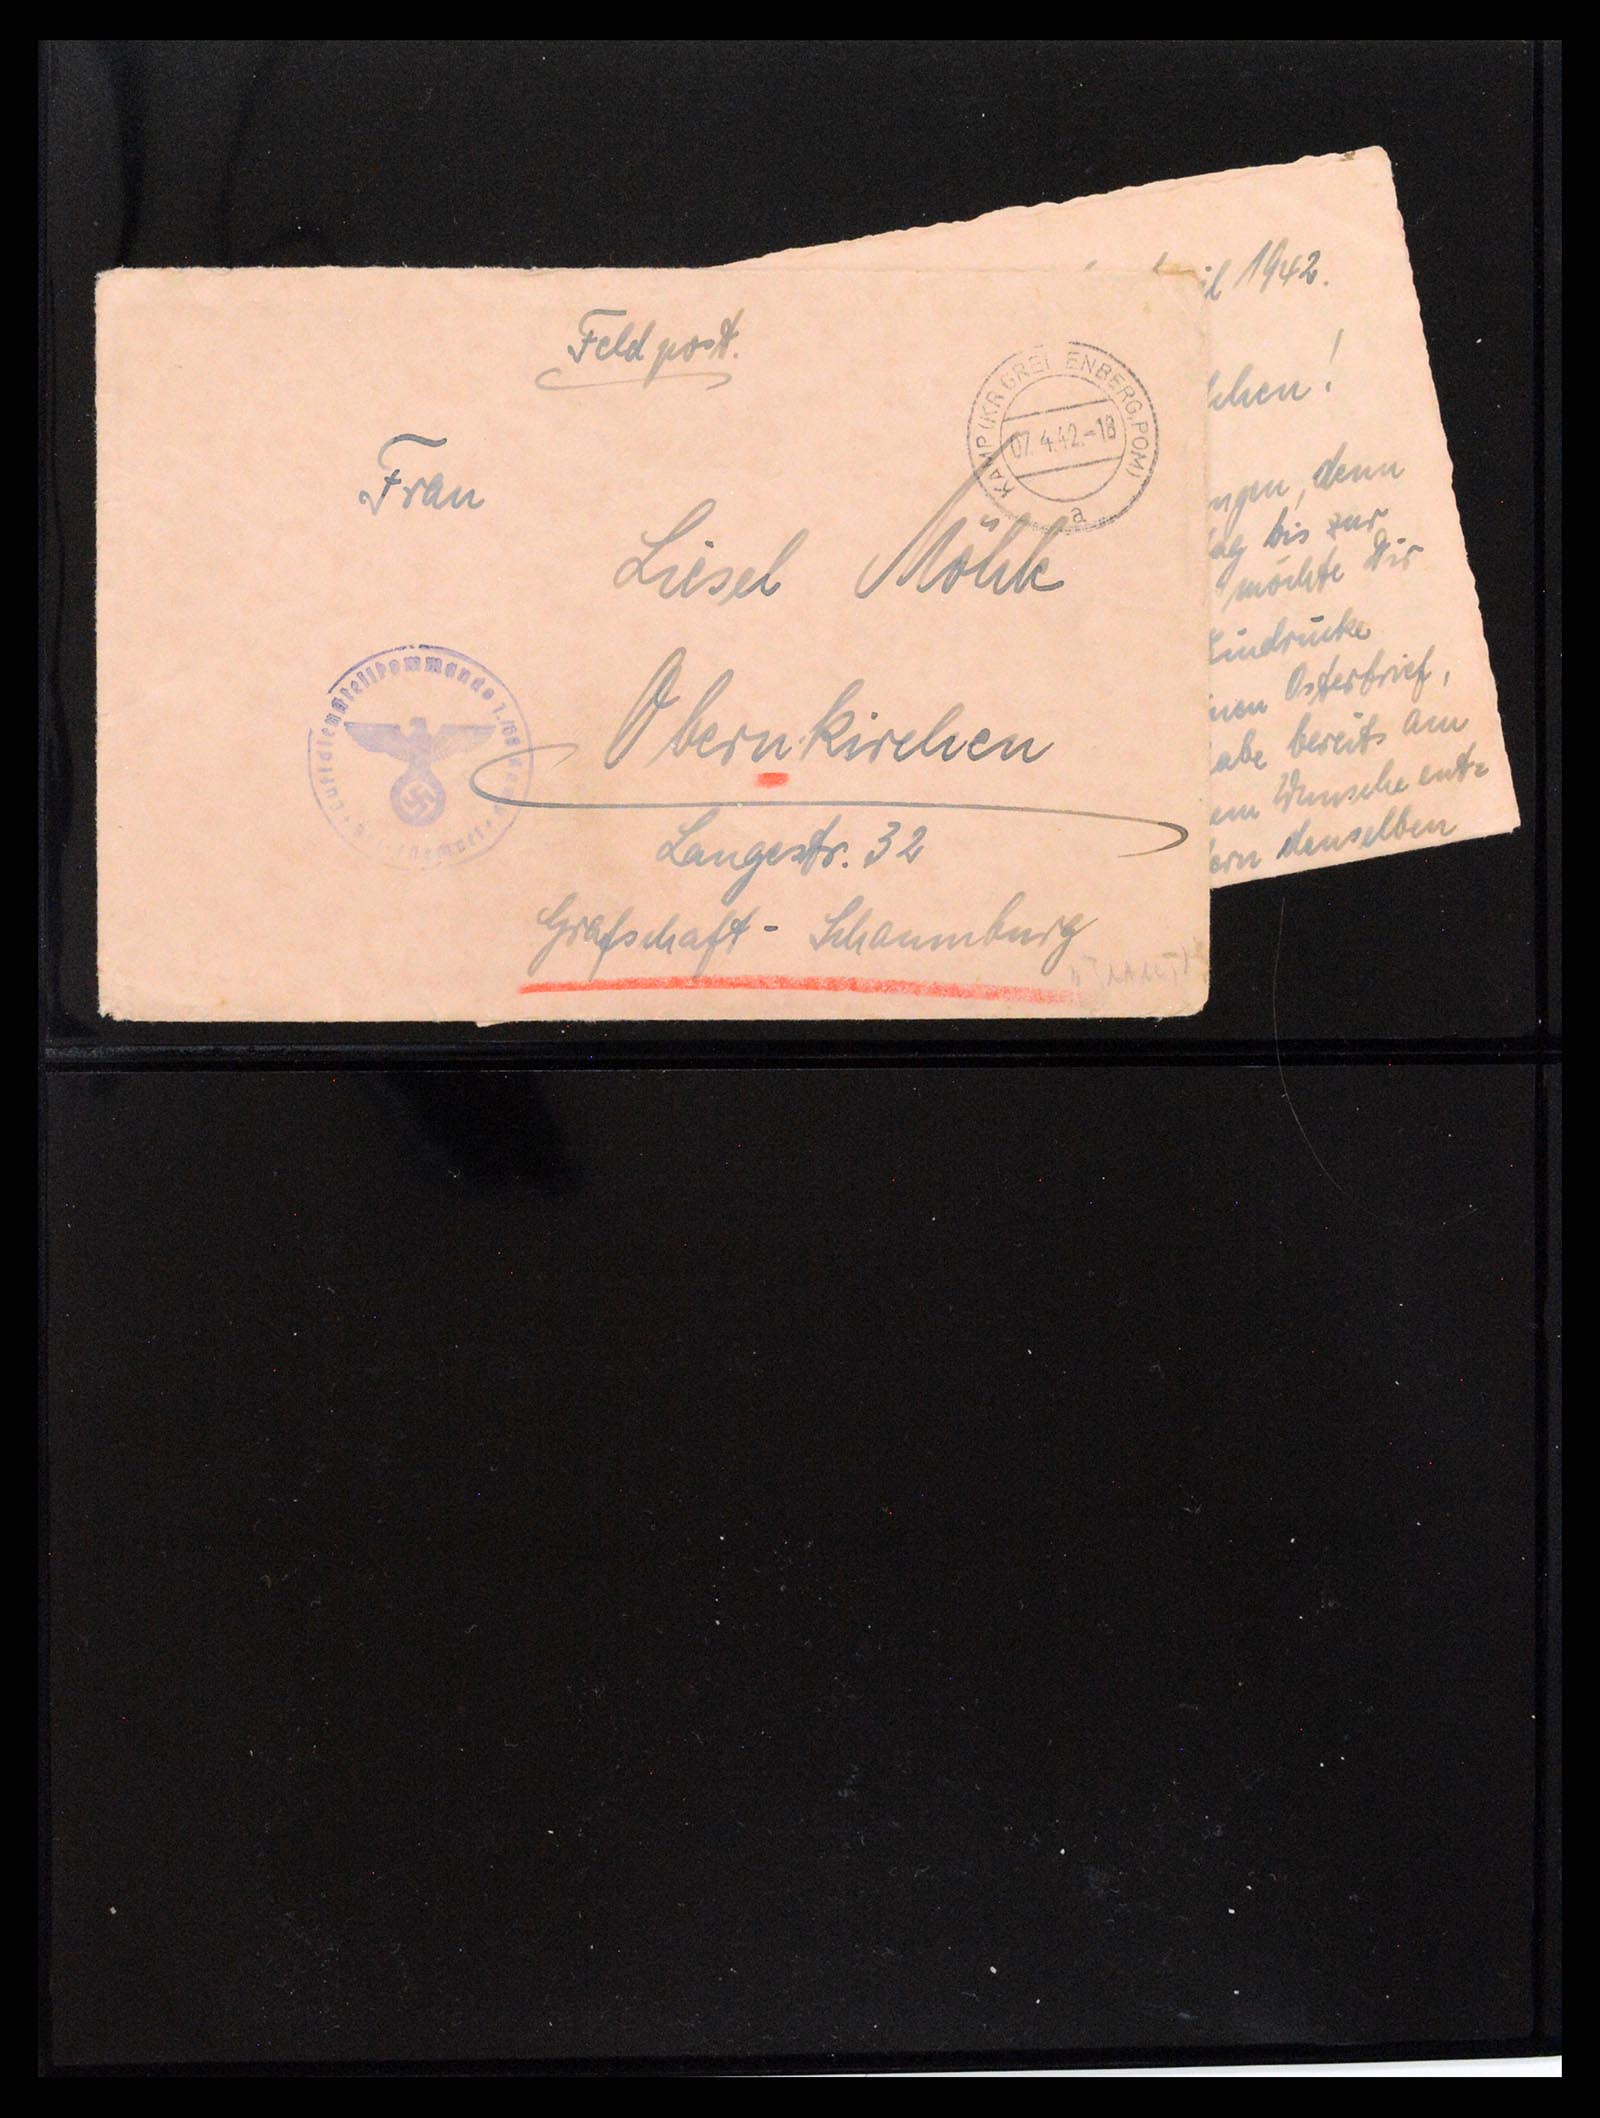 Feldpost.
KAMP (KR GREI ENBERG, POM)
07.4.42.-18
a
Frau
Liesel Möhle
Obernkirchen
Langestr. 32
Grafschaft - Schaumburg
Luftdienstteilkommando 1./
il 1942.
chen!
ngen, denn
ag bis zur
möchte Dir
Eindrücke
inen Osterbrief,
abe bereits am
em Wunsche ent=
ern denselben